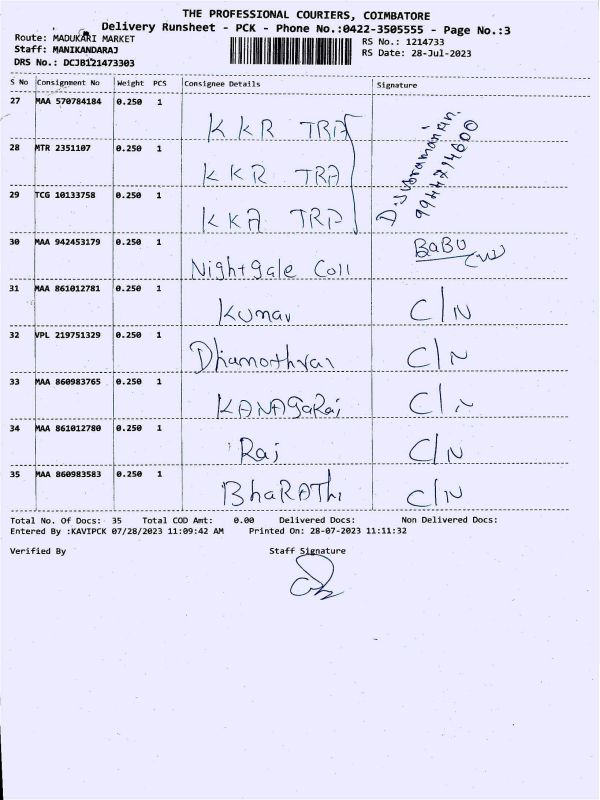 THE PROFESSIONAL COURIERS, COIMBATORE
Delivery Runsheet - PCK - Phone No.:0422-3505555 - Page No.:3
Route: MADUKARI MARKET
RS No.: 1214733
Staff: MANIKANDARAJ
RS Date: 28-Jul-2023
DRS No.: DCJB121473303
S No Consignment No Weight PCS Consignee Details Signature
27 MAA 570784184 0.250 1
KKR TRA
28 MTR 2351107 0.250 1
KKR TRA
29 TCG 10133758 0.250 1
KKA TRA
9944714600
30 MAA 942453179 0.250 1
Nightgale Coll BaBU
31 MAA 861012781 0.250 1
Kumar C/N
32 VPL 219751329 0.250 1
C/N
33 MAA 860983765 0.250 1
KANAgaRaj C/N
34 MAA 861012780 0.250 1
Raj C/N
35 MAA 860983583 0.250 1
BhaRATHi C/N
Total No. Of Docs: 35 Total COD Amt: 0.00 Delivered Docs: Non Delivered Docs:
Entered By :KAVIPCK 07/28/2023 11:09:42 AM Printed On: 28-07-2023 11:11:32
Verified By Staff Signature